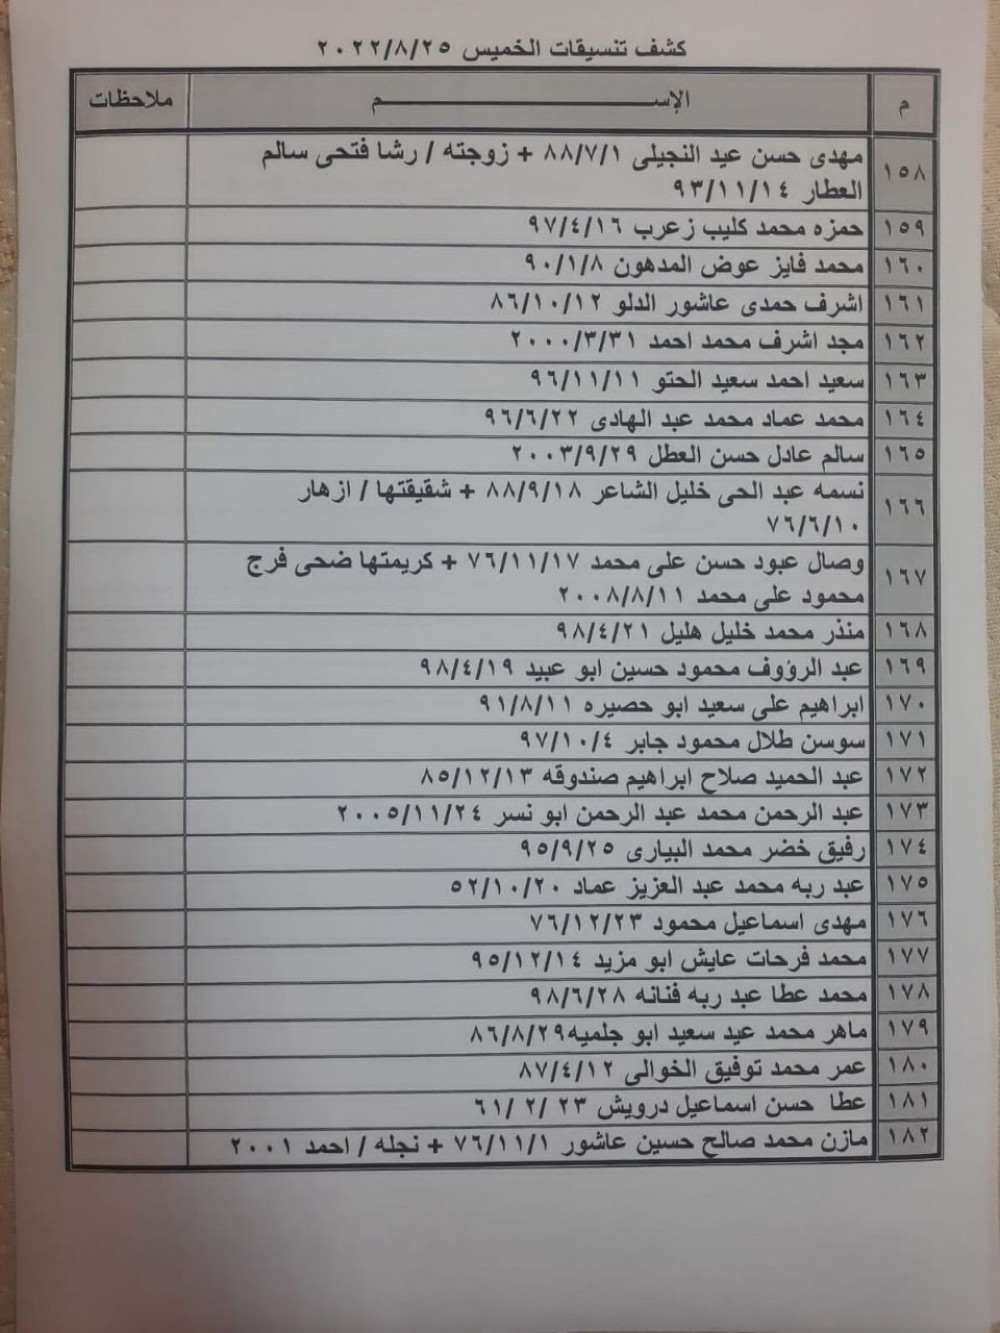 كشف تنسيقات الخميس ٢٠٢٢/٨/٢٥
م الإســـــــــــــم ملاحظات
١٥٨ مهدى حسن عيد النجيلى ٨٨/٧/١ + زوجته / رشا فتحى سالم
العطار ٩٣/١١/١٤
١٥٩ حمزه محمد كليب زعرب ٩٧/٤/١٦
١٦٠ محمد فايز عوض المدهون ٩٠/١/٨
١٦١ اشرف حمدى عاشور الدلو ٨٦/١٠/١٢
١٦٢ مجد اشرف محمد احمد ٢٠٠٠/٣/٣١
١٦٣ سعيد احمد سعيد الحتو ٩٦/١١/١١
١٦٤ محمد عماد محمد عبد الهادى ٩٦/٦/٢٢
١٦٥ سالم عادل حسن العطل ٢٠٠٣/٩/٢٩
١٦٦ نسمه عبد الحى خليل الشاعر ٨٨/٩/١٨ + شقيقتها / ازهار
٧٦/٦/١٠
١٦٧ وصال عبود حسن على محمد ٧٦/١١/١٧ + كريمتها ضحى فرج
محمود على محمد ٢٠٠٨/٨/١١
١٦٨ منذر محمد خليل هليل ٩٨/٤/٢١
١٦٩ عبد الرؤوف محمود حسين ابو عبيد ٩٨/٤/١٩
١٧٠ ابراهيم على سعيد ابو حصيره ٩١/٨/١١
١٧١ سوسن طلال محمود جابر ٩٧/١٠/٤
١٧٢ عبد الحميد صلاح ابراهيم صندوقه ٨٥/١٢/١٣
١٧٣ عبد الرحمن محمد عبد الرحمن ابو نسر ٢٠٠٥/١١/٢٤
١٧٤ رفيق خضر محمد البيارى ٩٥/٩/٢٥
١٧٥ عبد ربه محمد عبد العزيز عماد ٥٢/١٠/٢٠
١٧٦ مهدى اسماعيل محمود ٧٦/١٢/٢٣
١٧٧ محمد فرحات عايش ابو مزيد ٩٥/١٢/١٤
١٧٨ محمد عطا عبد ربه فنانه ٩٨/٦/٢٨
١٧٩ ماهر محمد عيد سعيد ابو جلميه٨٦/٨/٢٩
١٨٠ عمر محمد توفيق الخوالى ٨٧/٤/١٢
١٨١ عطا حسن اسماعيل درويش ٢٣ /٢ /٦١
١٨٢ مازن محمد صالح حسين عاشور ٧٦/١١/١ + نجله / احمد ٢٠٠١